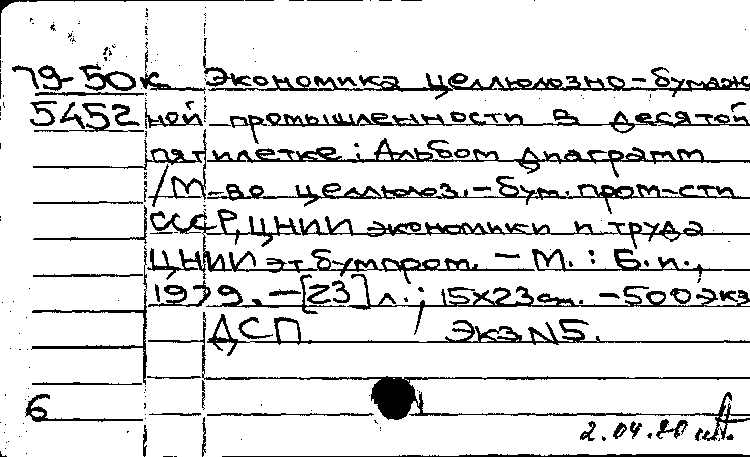 79-50к Экономика целлюлозно-бумаж
5452 ной промышленности в десятой
пятилетке: Альбом диаграмм
/М-во целлюлоз.-бум. пром-сти
СССР, ЦНИИ экономики и труда
ЦНИИэтбумпром. - М.: Б.и.,
1979. - [23] л.; 15х23 см. - 500 экз
ДСП. Экз N5.
6
2.04.80